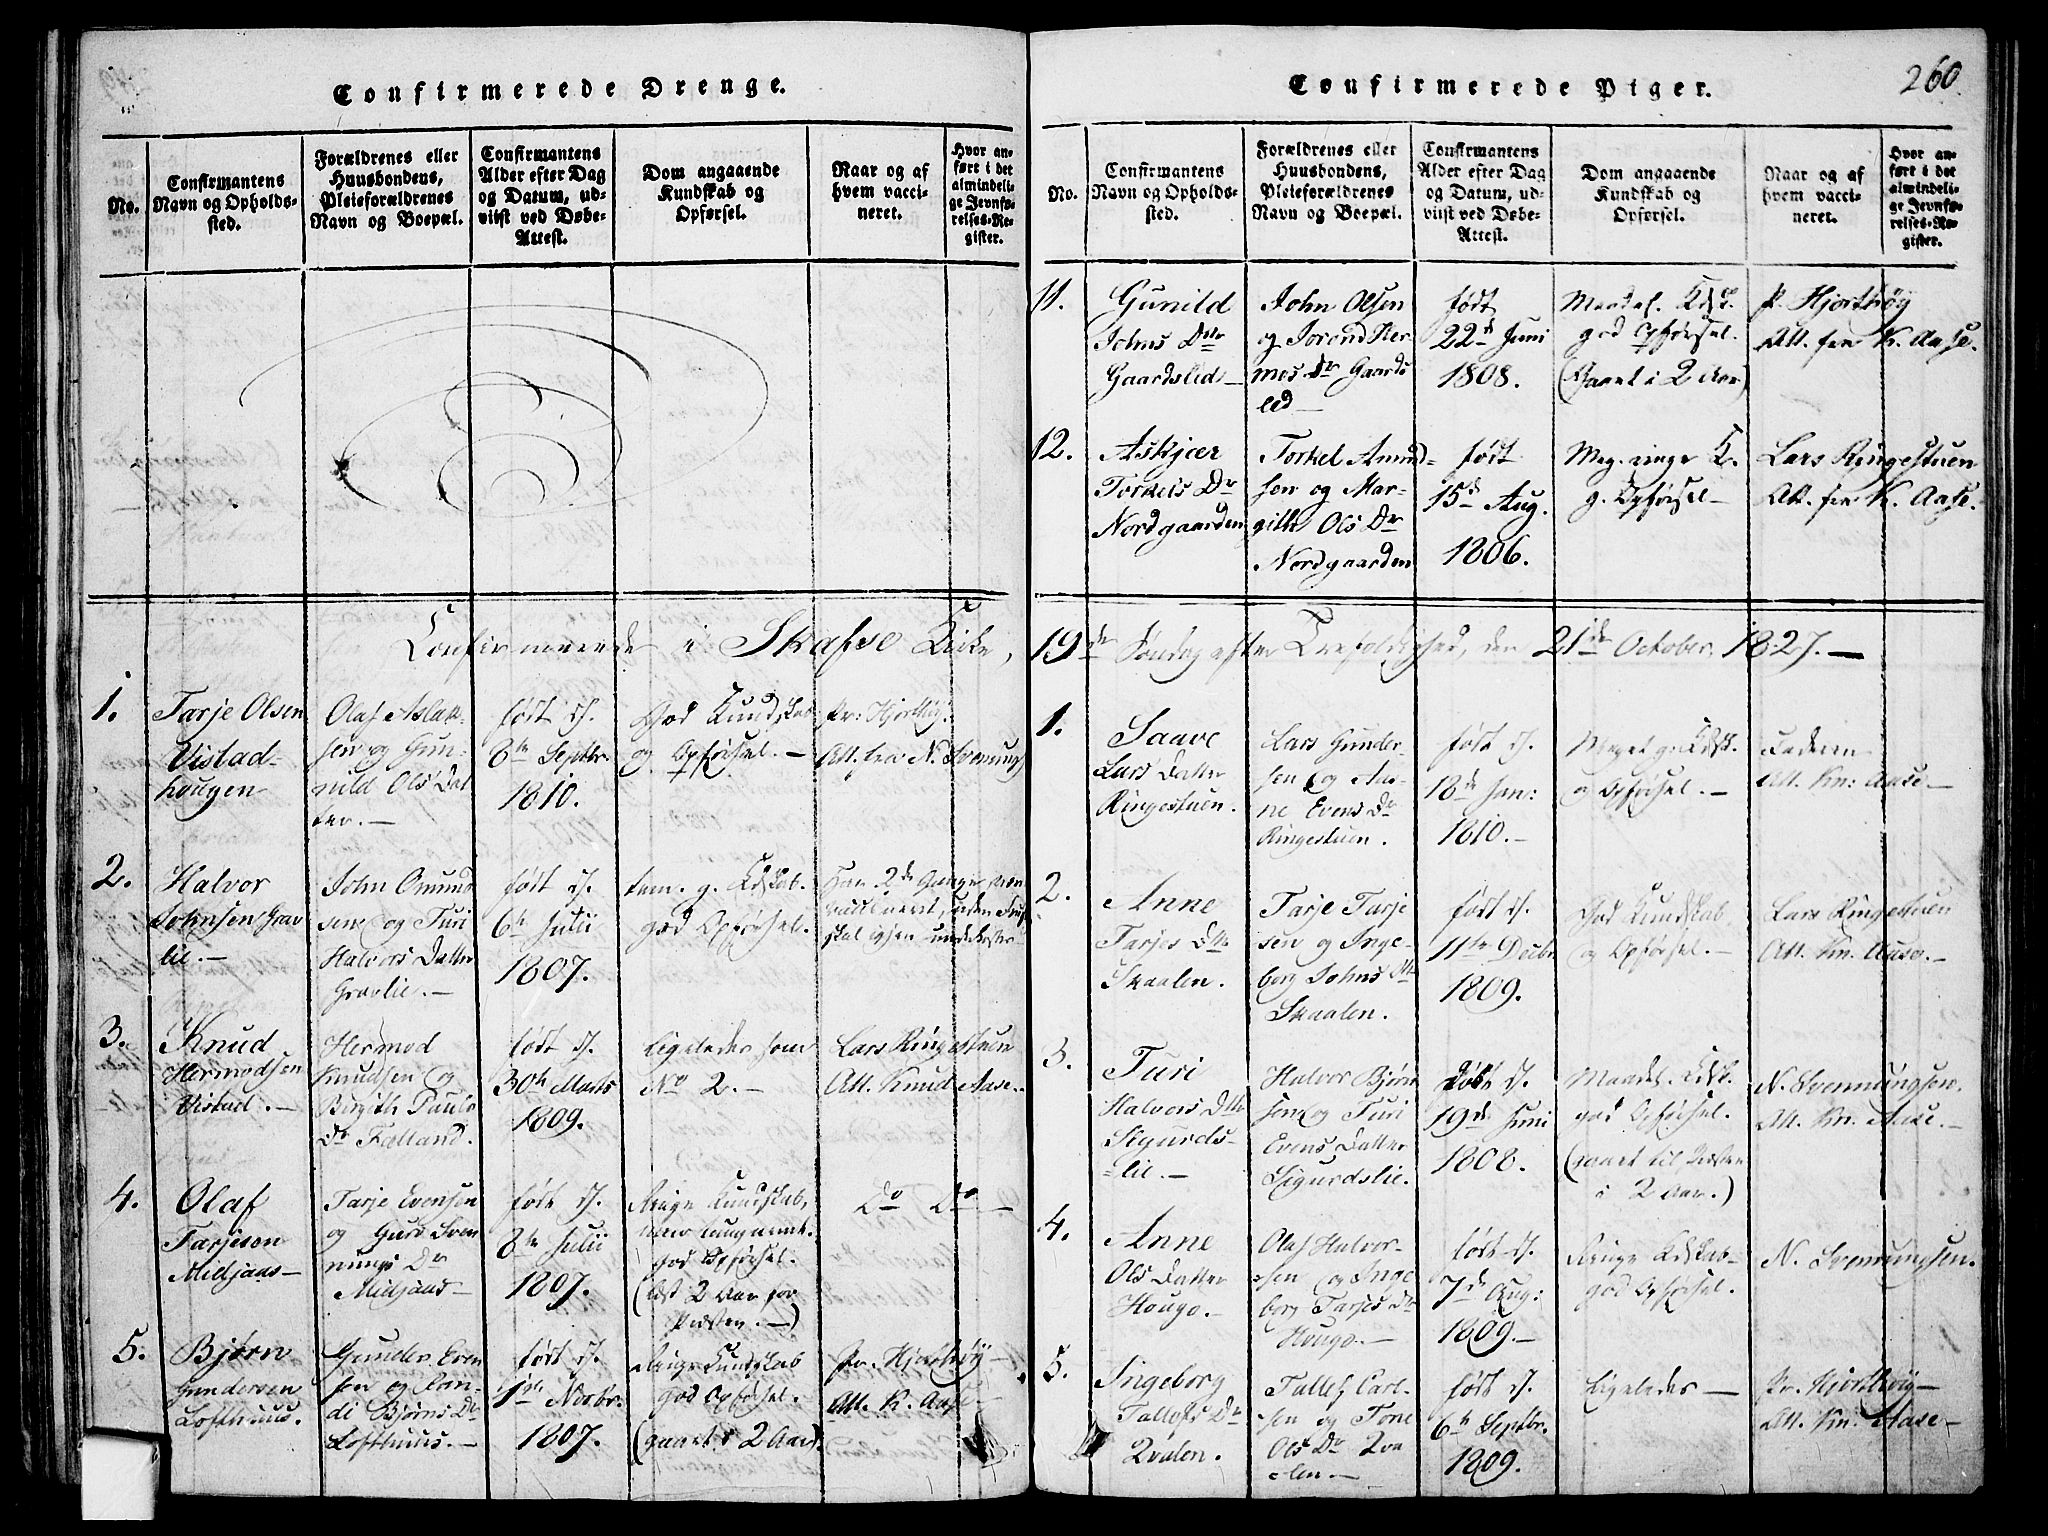 Confirmerede Drenge.
No.
Confirmantens
Navn og Opholds-
sted.
Forældrenes eller
Huusbondens,
Pleieforældrenes
Navn og Boepæl.
Confirmantens
Alder efter Dag
og Datum, ud-
viist ved Døbe-
Attest.
Dom angaaende
Kundskab og
Opførsel.
Naar og af
hvem vacci-
neret.
Hvor an-
ført i det
almindeli-
ge Jevnfø-
relses-Re-
gister.
Confirmerede i Skafse Kirke,
1.
Tarje Olsen
Vistad-
hougen
Olaf Aslak-
sen og Gun-
nild Ols Dat
ter. —
født d.
8de Septbr.
1810.
God Kundskab
og Opførsel. —
Pr: Hjorthøy.
Att. fra N. Svenungs
2.
Halvor
Johnsen Grav
lie. —
John Omund
sen og Turi
Halvors Datter
Gravlie. —
født d.
6te Julii
1807.
tem. g. Kdskab.
god Opførsel.
Har 2de Gange
3.
Knud
Hermodsen
Vistad. —
Hermod
Knudsen og
Birgith Pauls
Dr Falland.
født d.
30te Marts
1809.
Ligeledes som
No 2. —
Lars Ringestuen
Att. Knud Aase. —
4.
Olaf
Tarjeson
Midjaas —
Tarje Evensen
og Guro Sven
nungs Dr
Midjaas —
født d.
8de Julii
1807.
Ringe Kundskab,
god Opførsel.
(læst 2 Aar for
Præsten. —)
Do Do —
5.
Bjørn
Gundersen
Lofthuus.
Gunder Even
sen og Ran-
di Bjørns Dr
Lofthuus. —
født d.
1ste Novbr.
1807.
Ringe Kundskab
god Opførsel.
(gaaet i 2 Aar)
Pr. Hjorthøy —
Att. K. Aase —
Confirmerede Piger.
260
No.
Confirmantens
Navn og Opholds-
sted.
Forældrenes eller
Huusbondens,
Pleieforældrenes
Navn og Boepæl.
Confirmantens
Alder efter Dag
og Datum, ud-
viist ved Døbe-
Attest.
Dom angaaende
Kundskab og
Opførsel.
Naar og af
hvem vacci-
neret.
Hvor an-
ført i det
almindeli-
ge Jevnfø-
relses-Re-
gister.
11.
Gunild
Johns Dtr
Gaardslid —
John Olsen
og Jorond Her
mos Dr Gaards
lid —
født
22d Juni
1808.
Maadel. Kdsk.
god Opførsel.
(Gaaet i 2 Aar)
P. Hjorthøy
Att. fra K. Aase.
12.
Askjær
Torkels Dr
Nordgaarden
Torkel Amund-
sen og Mar-
gith Ols Dr
Nordgaarden
født
15d Aug.
1806.
Meg. ringe K.
g. Opførsel —
Lars Ringestuen
Att. fra K. Aase.
19de Søndag efter Trefoldighed, den 21de October, 1827. —
1.
Saave
Lars Datter
Ringestuen.
Lars Gunder-
sen og An-
ne Evens Dr
Ringestuen.
født d.
18de Jan:
1810. —
Meget g. Kdsk.
og Opførsel. —
Faderen
Att. Kn: Aase. —
2.
Anne
Tarjes Dtr
Skaalen.
Tarje Tarje
sen og Inge-
borg Johns Dtr
Skaalen.
født d.
11te Decbr.
1809.
God Kundskab
og Opførsel. —
Lars Ringestuen
Att. Kn. Aase. —
3.
Turi
Halvors Dtr
Sigurds-
-lie. —
Halvor Bjørn
sen og Turi
Evens Datter
Sigurdslie.
født d.
19de Juni
1808.
Maadel. Kdsk.
god Opførsel.
(gaaet til Præsten
i 2 Aar.)
N. Svennungsen.
Att. Kn. Aase. —
4.
Anne
Ols Datter
Hougo. —
Olaf Halvor-
sen og Inge
borg Tarjes Dr
Hougo. —
født d.
7de Aug:
1809. —
Ringe Kdskab-
god Opførsel.
N. Svennungsen.
5.
Ingeborg
Tallefs Dr
Qvalen.
Tallef Carl-
sen og Tone
Ols Dr Qva
-len. —
født d.
6te Septbr.
1809.
Ligeledes —
Pr. Hjorthøy —
Att. Kn. Aase —